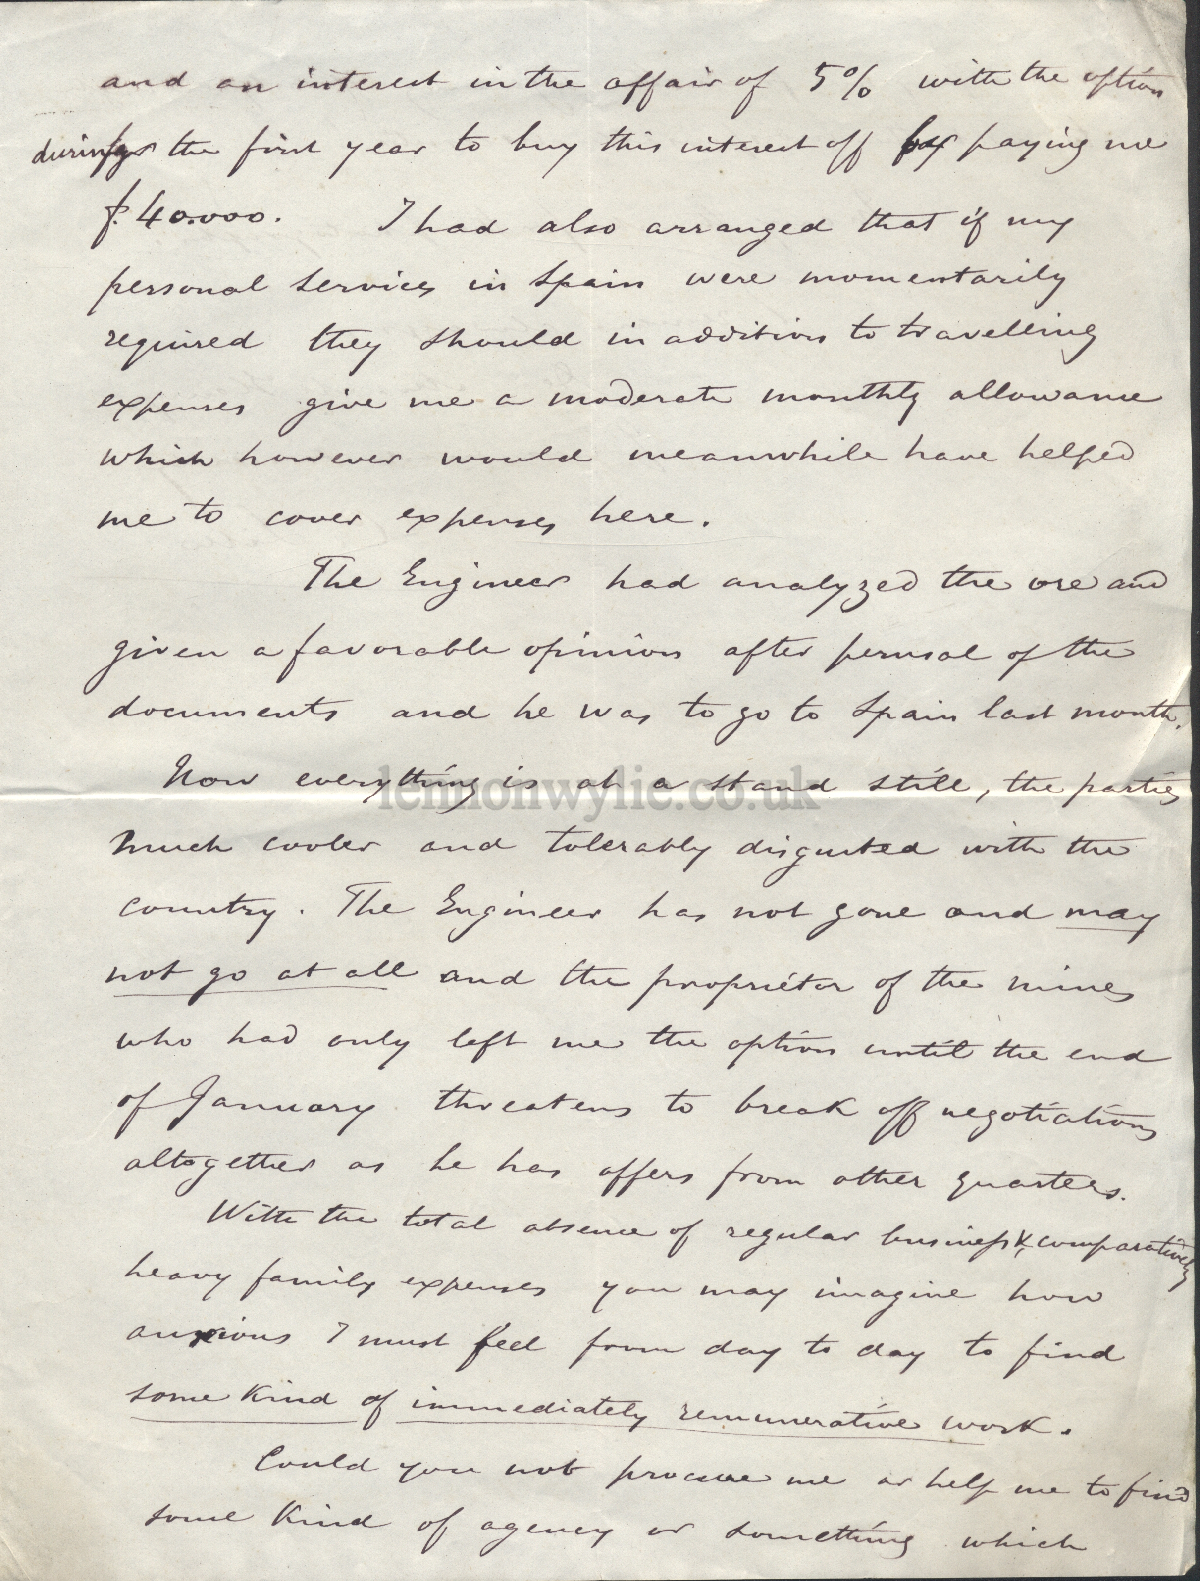 and an interest in the affair of 5% with the option
during the first year to buy this interest off by paying me
f. 40.000. I had also arranged that if my
personal services in Spain were momentarily
required they should in addition to travelling
expenses give me a moderate monthly allowance
which however would meanwhile have helped
me to cover expenses here.
The Engineer had analyzed the ore and
given a favorable opinion after perusal of the
documents and he was to go to Spain last month.
Now everything is at a stand still, the parties
lennonwylie.co.uk
much cooler and tolerably disgusted with the
country. The Engineer has not gone and may
not go at all and the proprietor of the mines
who had only left me the option until the end
of January threatens to break off negotiations
altogether as he has offers from other quarters.
With the total absence of regular business & comparatively
heavy family expenses you may imagine how
anxious I must feel from day to day to find
some kind of immediately remunerative work.
Could you not procure me or help me to find
some kind of agency or something which